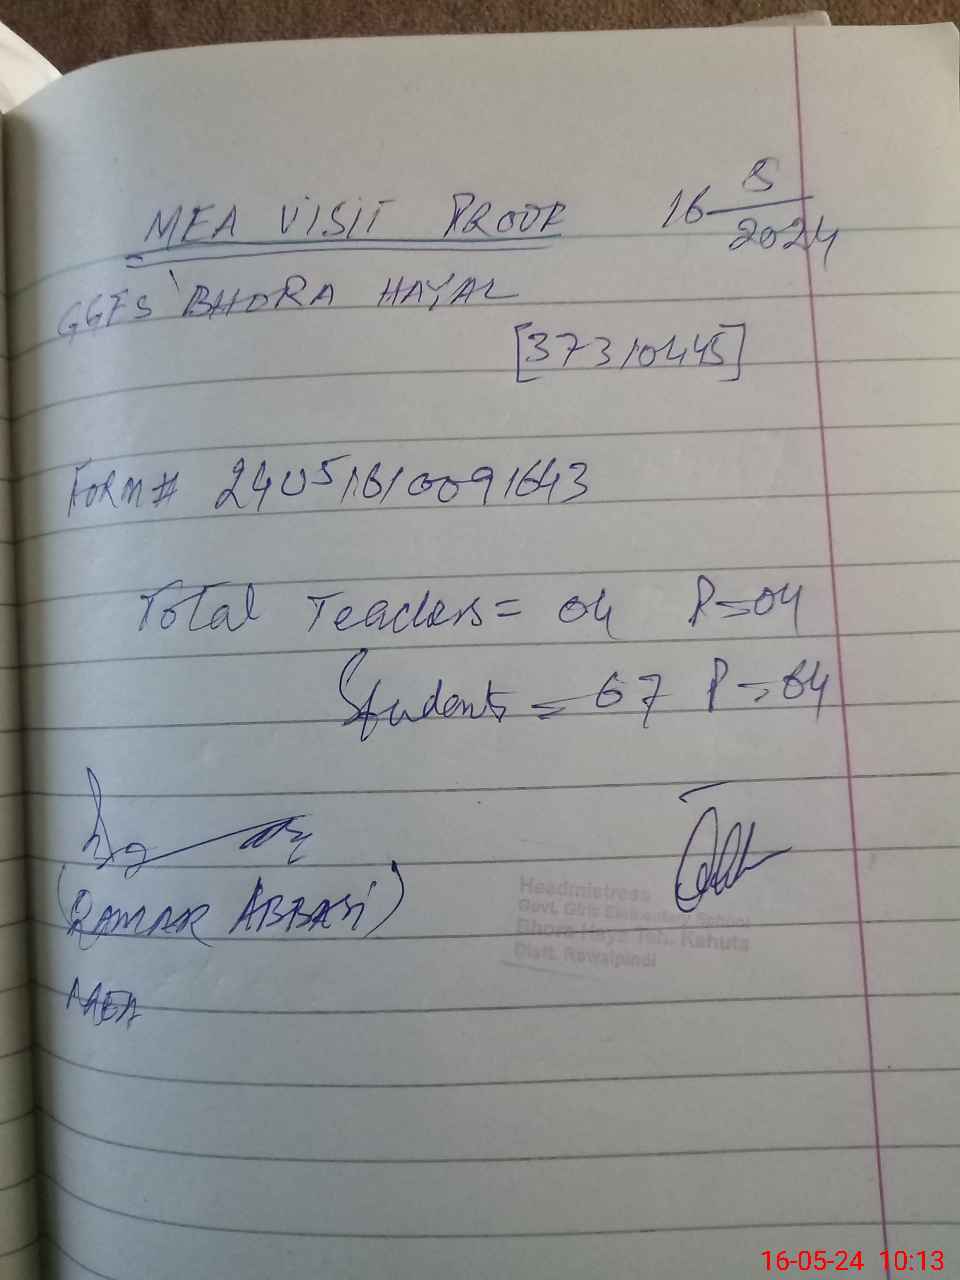 MEA VISIT PROOF 16-5/2024
GGES BHORA HAYAL
[37310445]
FORM# 24051610091643
Total Teachers = 04 P=04
Students = 67 P=64
(QAMAR ABBASI)
MEA
Headmistress
Govt. Girls Elementary School
Bhora Haya Teh. Kahuta
Distt. Rawalpindi
16-05-24 10:13